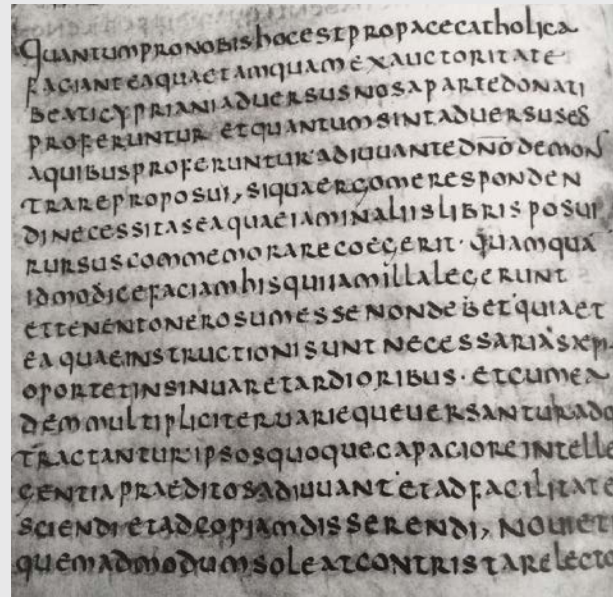 quantumpronobishocestpropacecatholica
facianteaquaetamquamexauctoritate
beaticyprianiaduersusnosapartedonati
proferuntur etquantumsintaduersuseos
aquibusproferuntur·adiuuantedn̄ōdemon
trareproposui, siquaergomeresponden
dinecessitaseaquaeiaminaliislibrisposui
rursuscommemorarecoegerit· quamqua
idmodicefaciamhisquiiamillalegerunt
ettenentonerosumessenondebet·quiaet
eaquaeinstructionisunt necessariasaepi
oportetinsinuaretardioribus· etcumea
demmultipliciteruariequeuersanturad
tractantur·ipsosquoquecapacioreintelle
gentiapraeditosadiuuant·etadfacilitate
sciendietadcopiamdisserendi, nouiet
quemadmodumsoleatcontristarelecto